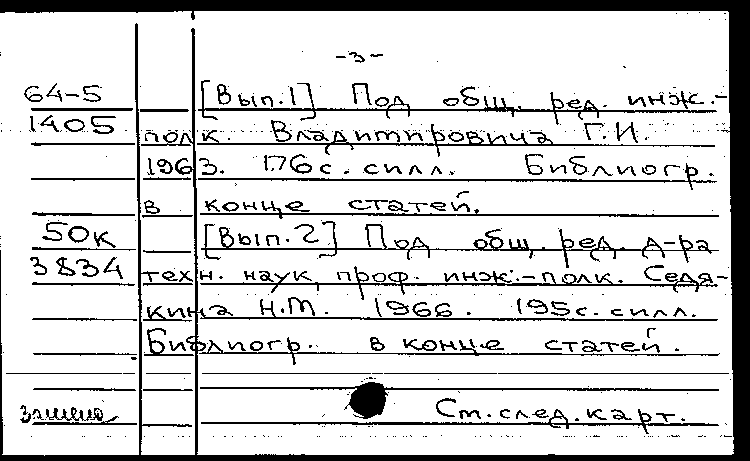 -3-
64-5 [Вып.1] Под общ. ред. инж.-
1405 полк. Владимировича Г.И.
1963. 176 с. с илл. Библиогр.
в конце статей.
50к [Вып.2] Под общ. ред. д-ра
3834 техн. наук, проф. инж.-полк. Седя-
кина Н.М. 1966. 195с. с илл.
Библиогр. в конце статей.
Ст. след. карт.